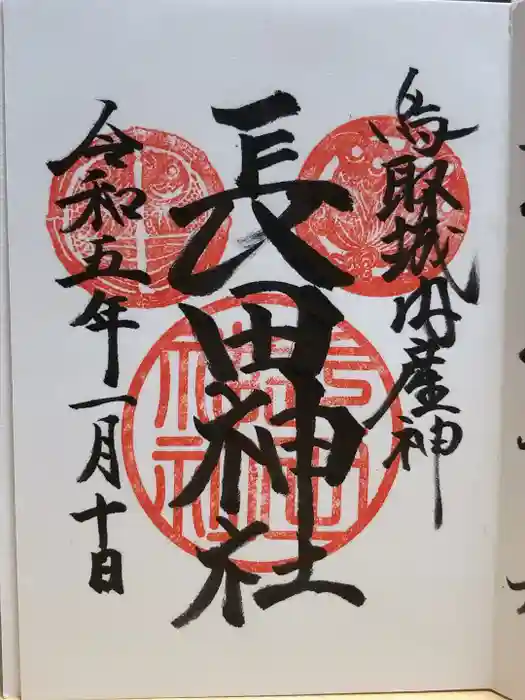 鳥取城内産神
長田神社
令和五年一月十日